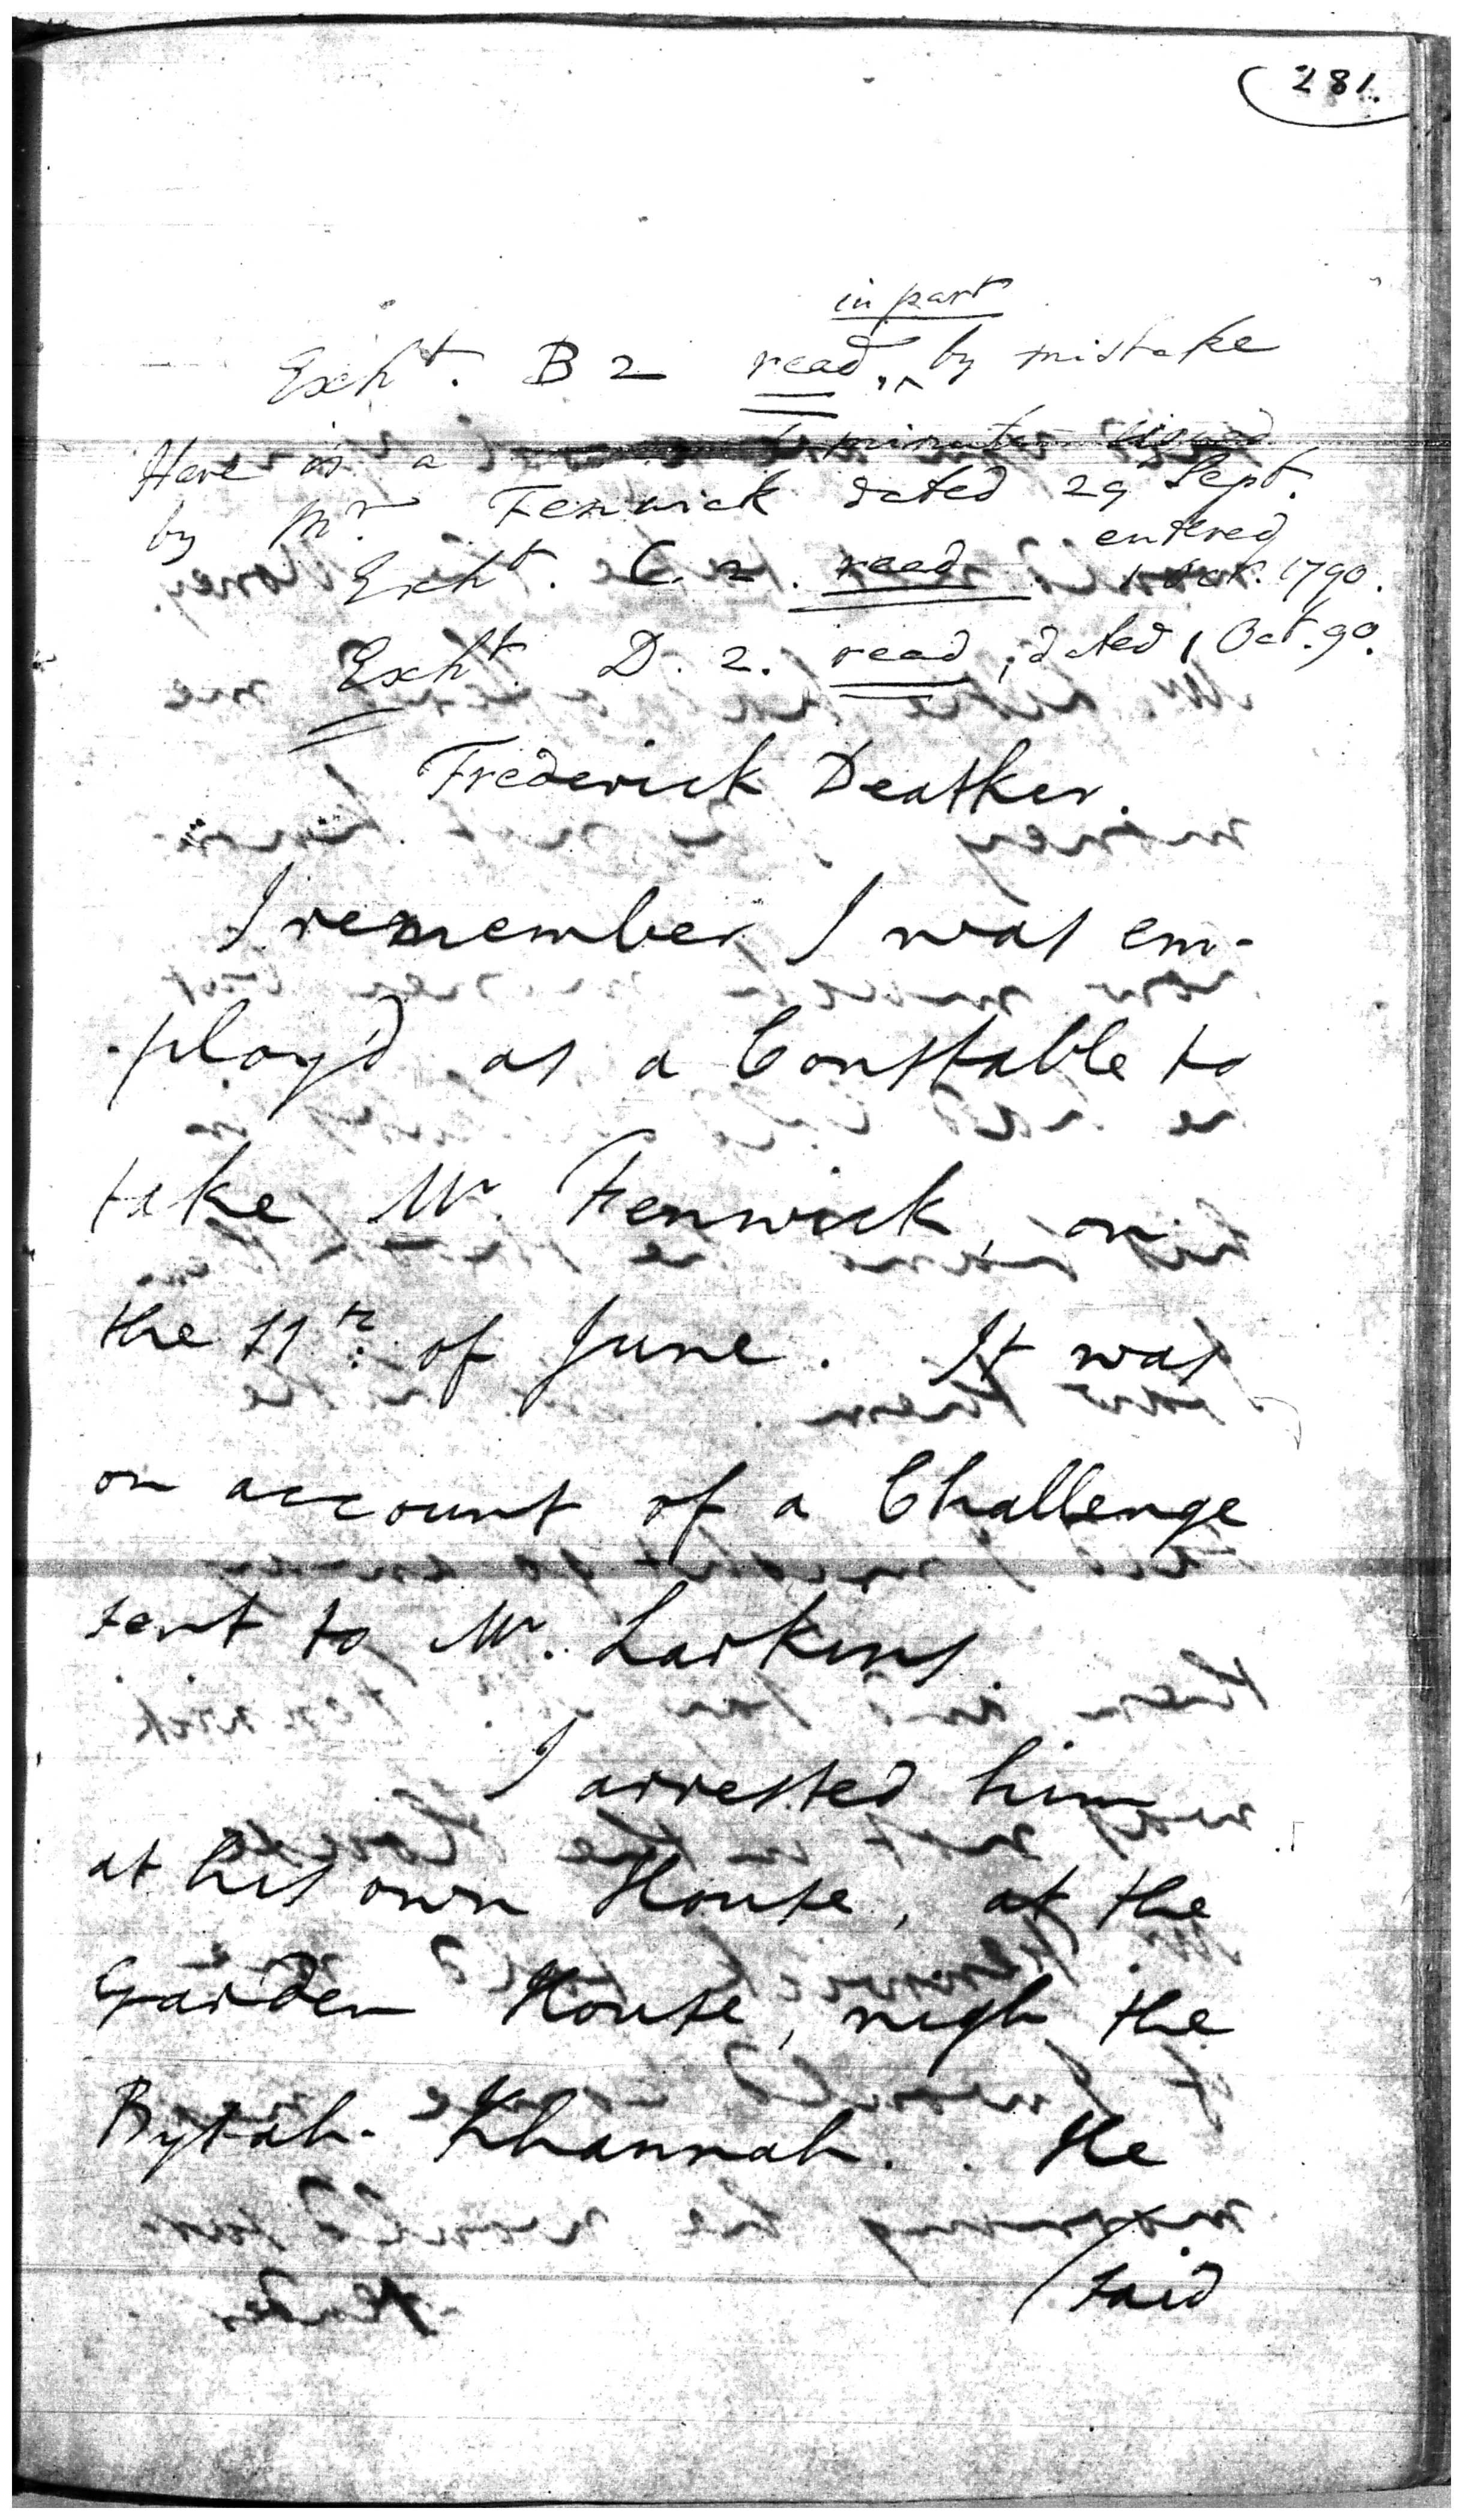 281.
in part
Exht. B 2 read by mistake
Here is a minute signed
by Mr Fenwick dated 29 Sept.
entered
Exht. C. 2. read 1 Oct. 1790.
Exht. D. 2. read, dated 1 Oct. 90.
Frederick Deatker.
I remember I was em-
-ploy'd as a Constable to
take Mr. Fenwick, on
the 11th of June. It was
on account of a Challenge
sent to Mr. Larkins.
I arrested him
at his own House, at the
Garden House, nigh the
Bytah-Khannah. He
(said